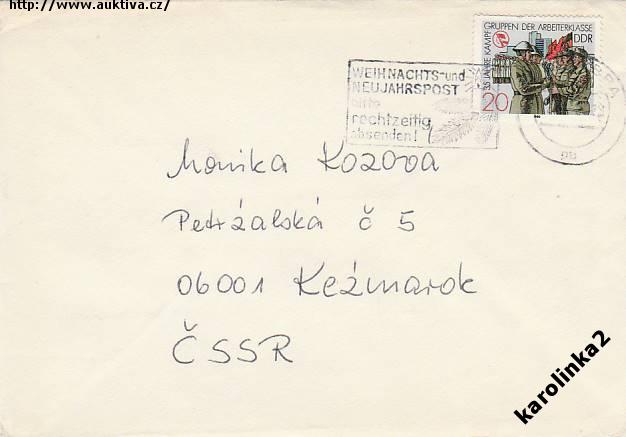 http://www.auktiva.cz/
35 JAHRE KAMPFGRUPPEN DER ARBEITERKLASSE
DDR
20
WEIHNACHTS-und
NEUJAHRSPOST
bitte
rechtzeitig
absenden!
Monika Kozova
Petržalská č 5
06001 Kežmarok
ČSSR
karolinka2